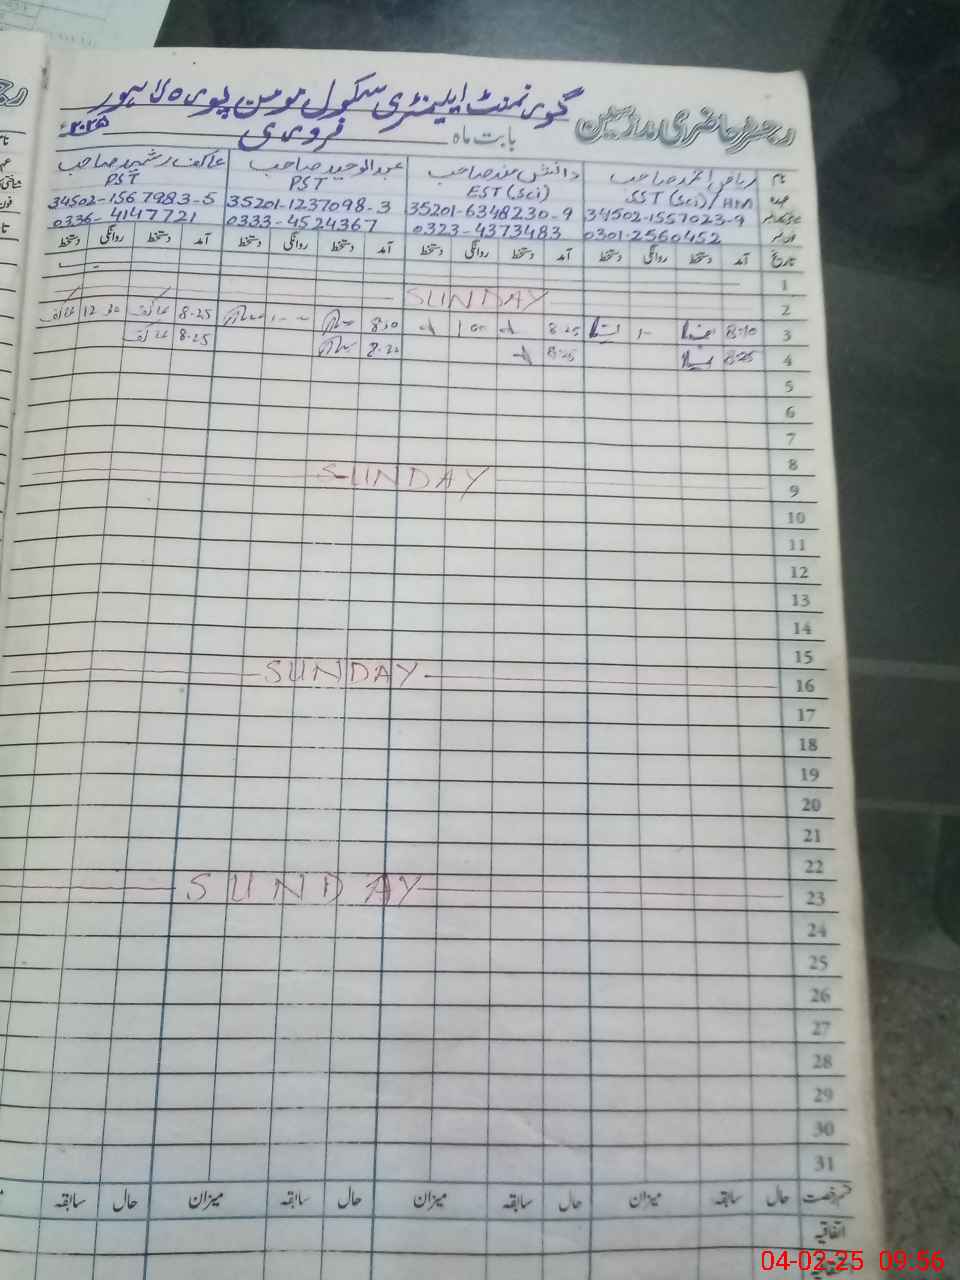 رجسٹر حاضری ملازمین گورنمنٹ ایلیمنٹری سکول مومن پورہ لاہور
بابت ماہ فروری ۲۰۲۵ء
نام ریاض احمد صاحب دانش صاحب عبدالوحید صاحب عاکف رشید صاحب
عہدہ SST (Sci) / HM EST (Sci) PST PST
34502-1557023-9 35201-6348230-9 35201-1237098-3 34502-1567983-5
0301-2560452 0323-4373483 0333-4524367 0336-4147721
تاریخ آمد دستخط روانگی دستخط آمد دستخط روانگی دستخط آمد دستخط روانگی دستخط آمد دستخط روانگی دستخط
1
2 SUNDAY
3 8.10 1- 8.25 1 00 8.20 1-- 8.25 عاکف 12 30 عاکف
4 8.25 8.25 8.20 8.25 عاکف
5
6
7
8
9 SUNDAY
10
11
12
13
14
15
16 SUNDAY
17
18
19
20
21
22
23 SUNDAY
24
25
26
27
28
29
30
31
قسم رخصت حال سابقہ میزان حال سابقہ میزان حال سابقہ میزان حال سابقہ
اتفاقیہ
04-02-25 09:56